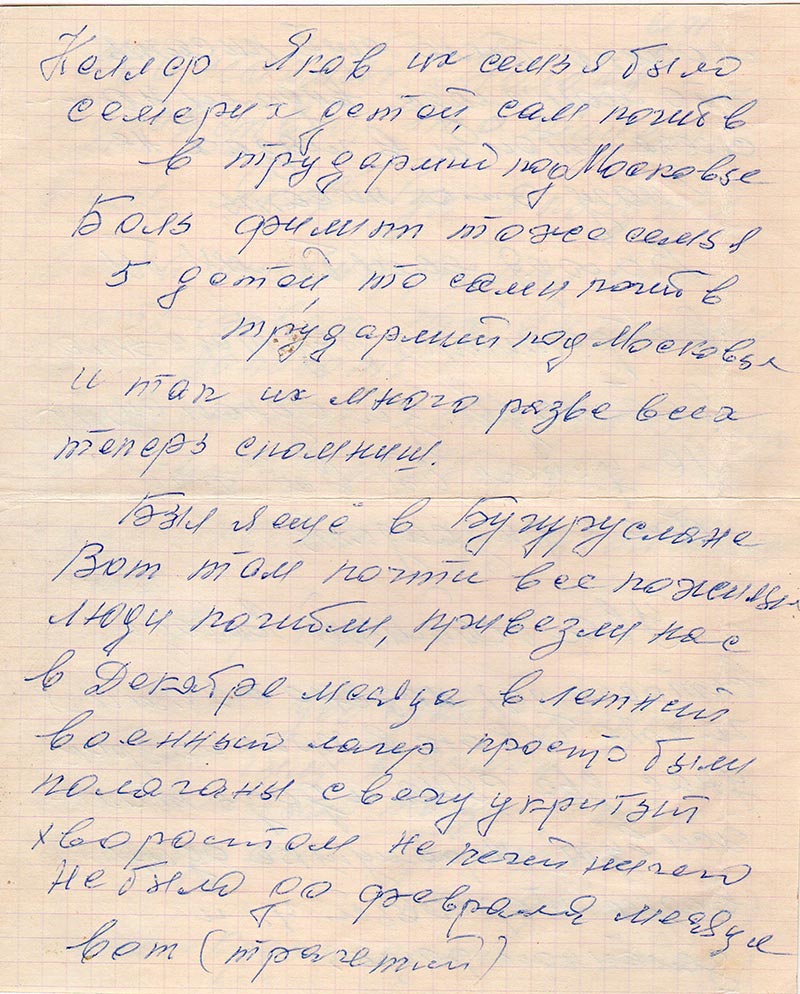 Келлер Яков их семья было
семерих детой, сам погиб в
в трудармий под Московье
Боль филипп тоже семья
5 детой, то сами погиб в
трудармий под Московья
и так их много разве всех
теперь спомниш.
Был я ещё в Бугуруслане
Вот там почти все пожилые
люди погибли, привезли нас
в Декабре месяца в летний
военный лагер просто были
полаганы с верху укритэт
хворостом не печей ничего
не было до февраля месяца
вот (трагетий)